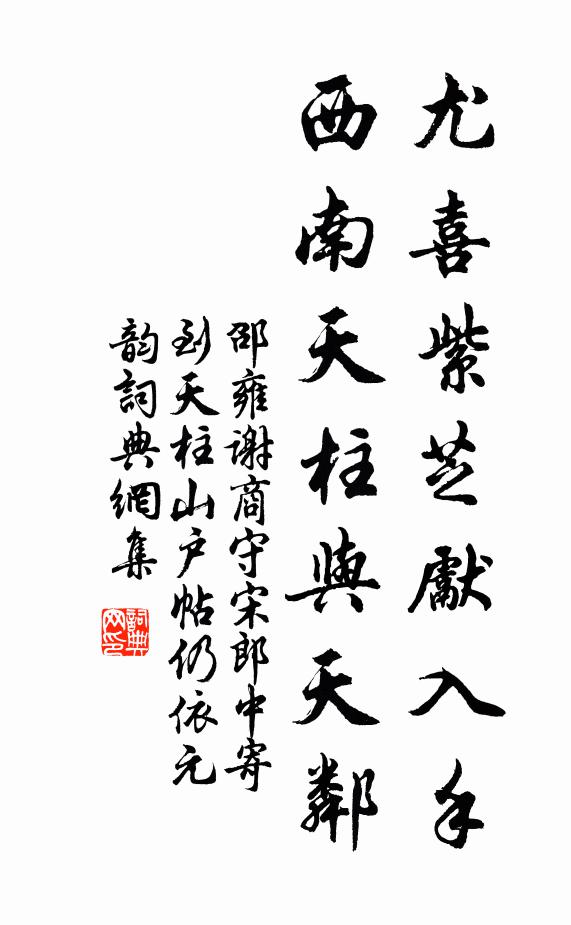 尤喜紫芝獻入手
西南天柱與天鄰
邵雍謝商守宋郎中寄
到天柱山户帖仍依元
韵詞典網集
詞典
网印